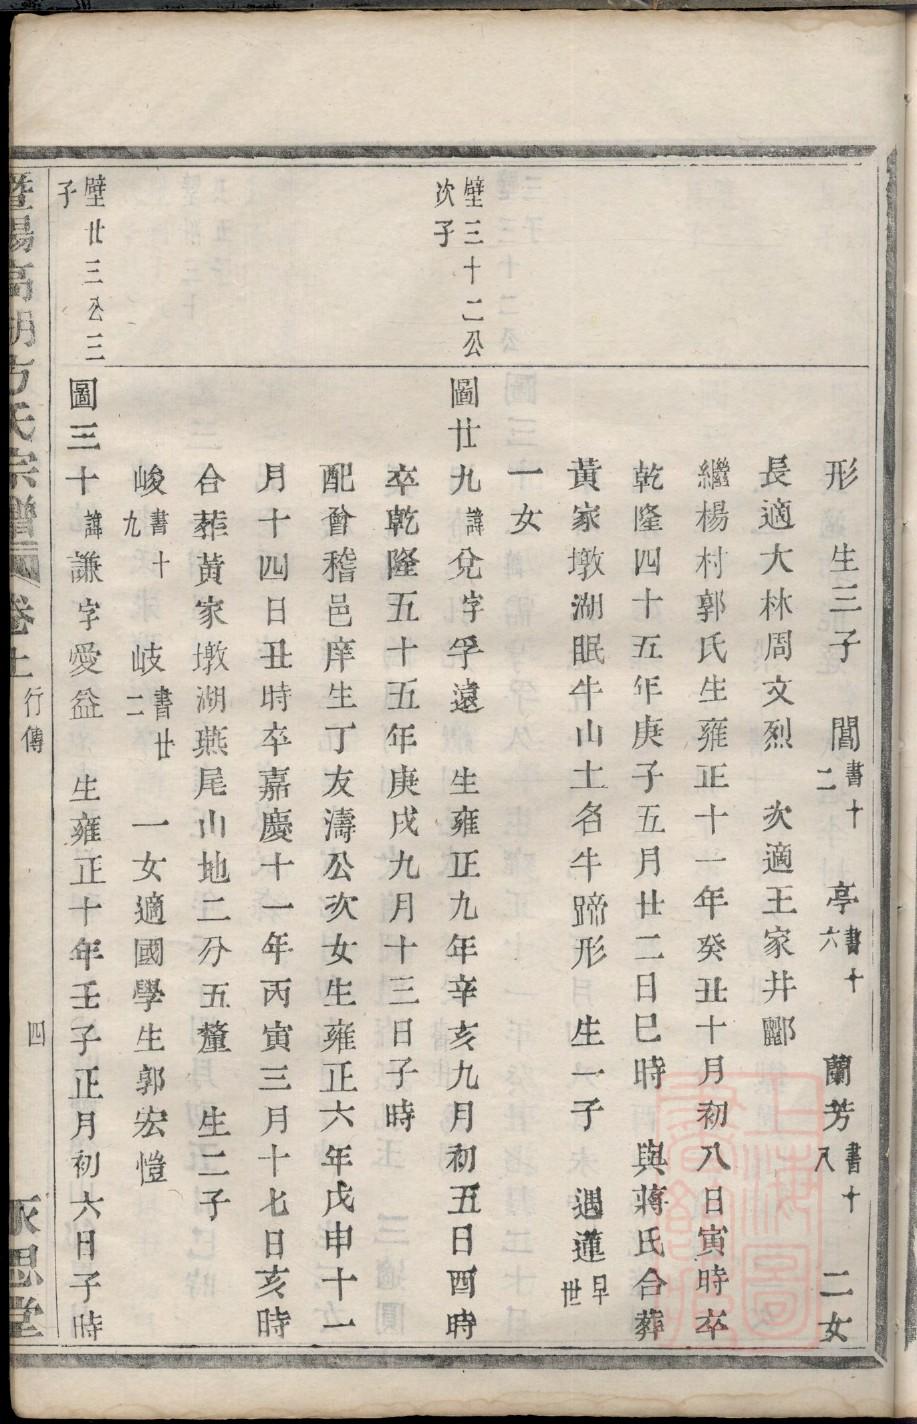 形　生三子　閶書十二　亭書十六　蘭芳書十八　二女
長適大林周文烈　次適王家井酈
繼楊村郭氏生雍正十一年癸丑十月初八日寅時卒
乾隆四十五年庚子五月廿二日巳時　與蔣氏合葬
黃家墩湖眠牛山土名牛蹄形　生一子　遇蓮早世
一女
壁三十二公次子
圖廿九諱兌字孚遠　生雍正九年辛亥九月初五日酉時
卒乾隆五十五年庚戌九月十三日子時
配會稽邑庠生丁友濤公次女生雍正六年戊申十一
月十四日丑時卒嘉慶十一年丙寅三月十七日亥時
合葬黃家墩湖燕尾山地二分五釐　生二子
峻書十九　岐書廿二　一女適國學生郭宏愷
壁廿三公三子
圖三十諱謙字愛益　生雍正十年壬子正月初六日子時
暨陽高湖方氏宗譜　卷上　行傳　四　永思堂